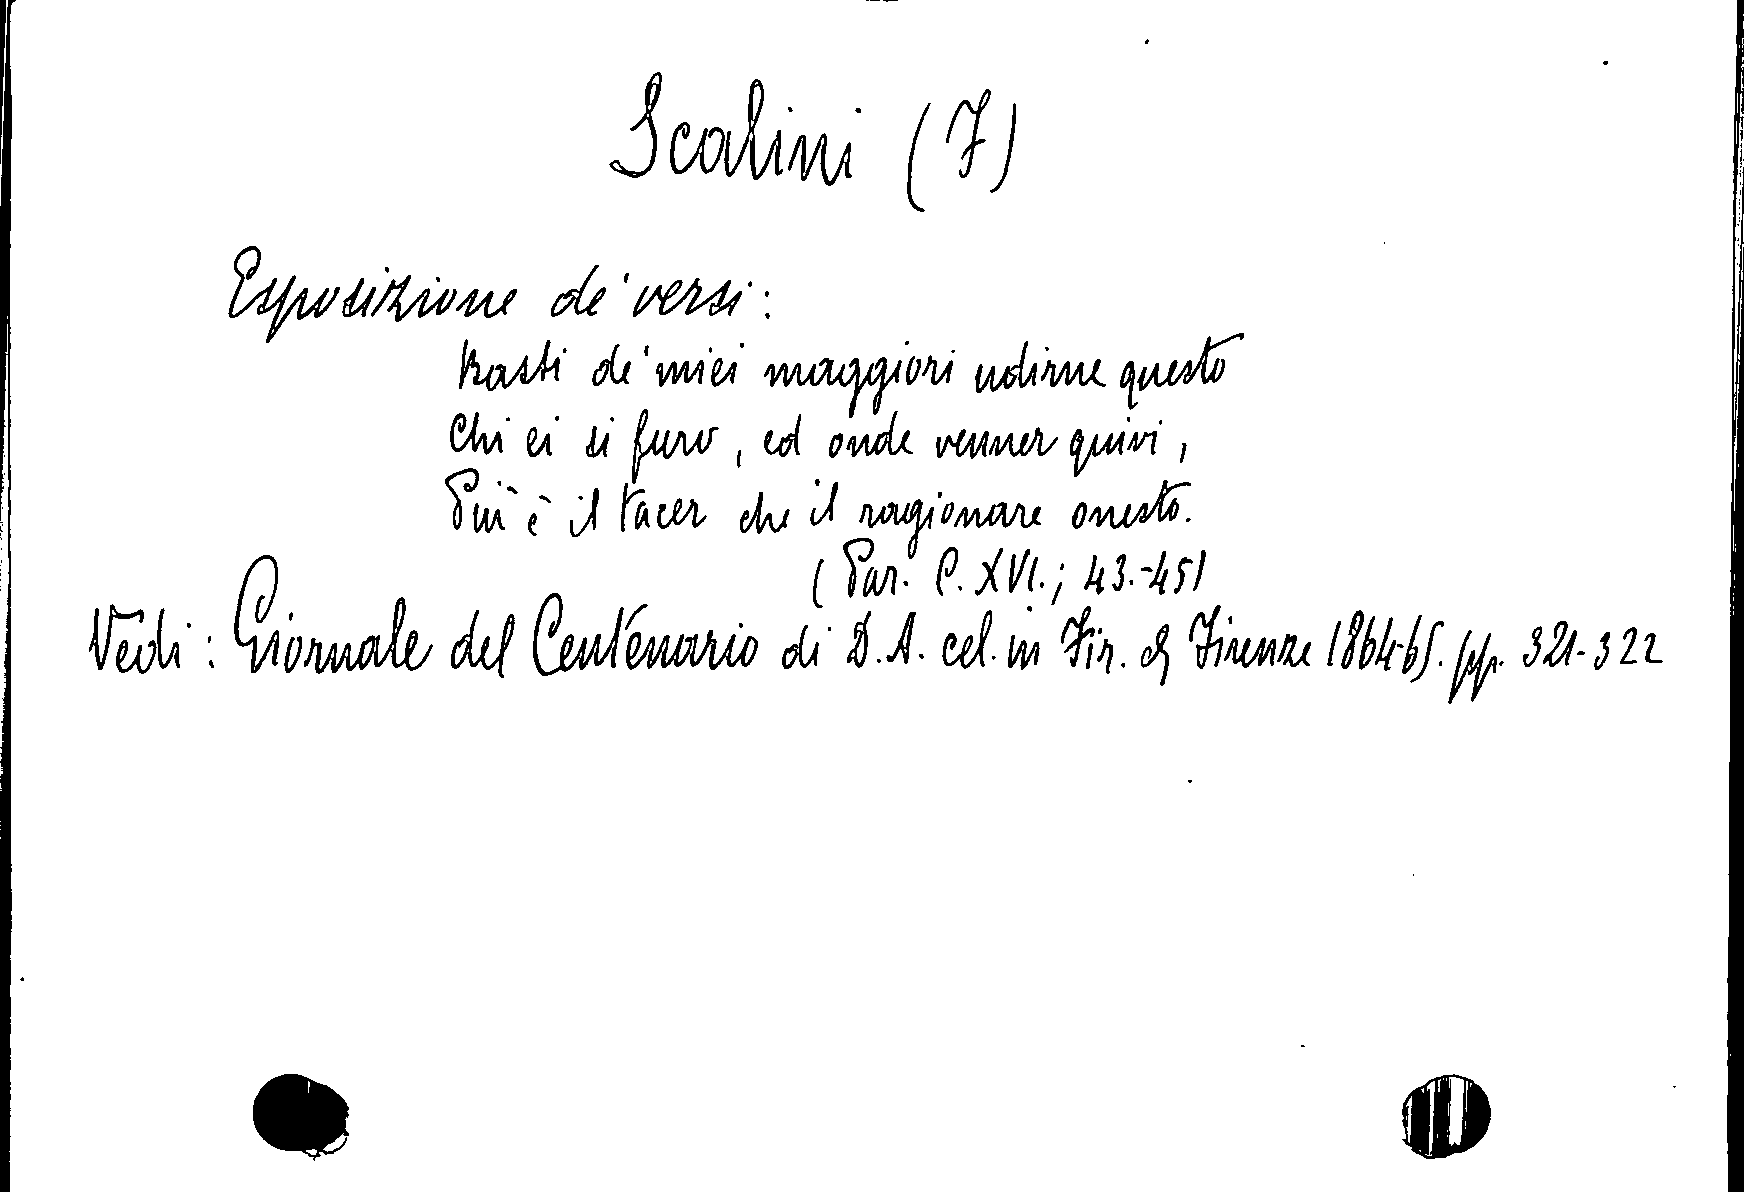 Scalini (F)
Esposizione de' versi:
Basti de' miei maggiori udirne questo
Chi ei si furo, ed onde venner quivi,
Più è il tacer che il ragionare onesto.
(Par. C. XVI.; 43.-45)
Vedi: Giornale del Centenario di D. A. cel. in Fir. & Firenze 1864-65. pp. 321-322